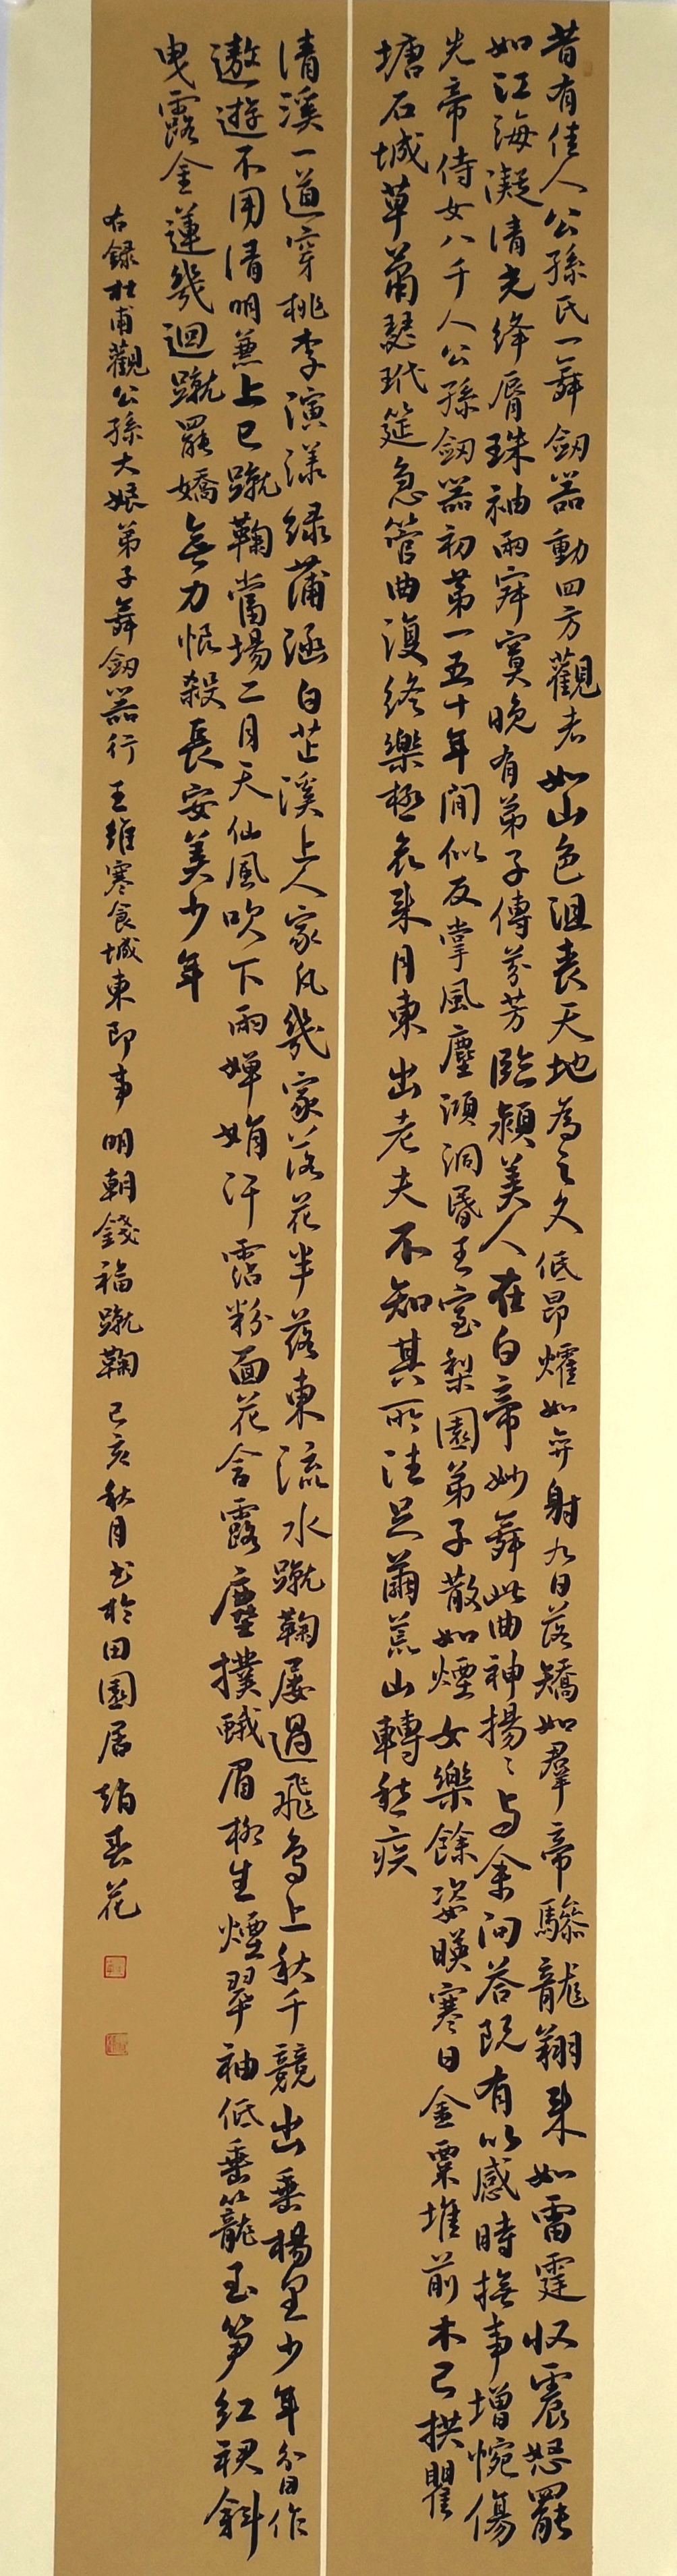 昔有佳人公孫氏一舞劒器動四方觀者如山色沮喪天地為之久低昂㸌如羿射九日落矯如羣帝驂龍翔来如雷霆收震怒罷
如江海凝清光絳唇珠袖兩寂寞晚有弟子傳芬芳臨潁美人在白帝妙舞此曲神揚〻与余问答既有以感時撫事增惋傷
先帝侍女八千人公孫劒器初第一五十年間似反掌風塵澒洞昏王室梨園弟子散如煙女樂餘姿暎寒日金粟堆前木已拱瞿
塘石城草萧瑟玳筵急管曲復終樂極哀来月東出老夫不知其所往足繭荒山轉愁疾
清溪一道穿桃李演漾緑蒲涵白芷溪上人家凡幾家落花半落東流水蹴鞠屡過飛鸟上秋千競出垂楊里少年分日作
遨遊不用清明兼上巳蹴鞠當場二月天仙風吹下兩嬋娟汗霑粉面花含露塵撲蛾眉柳生煙翠袖低垂籠玉笋红裙斜
曳露金蓮幾迴蹴罷嬌無力恨殺長安美少年
右録杜甫觀公孫大娘弟子舞劒器行 王維寒食城東即事 明朝錢福蹴鞠 己亥秋月书於田園居 趙春花